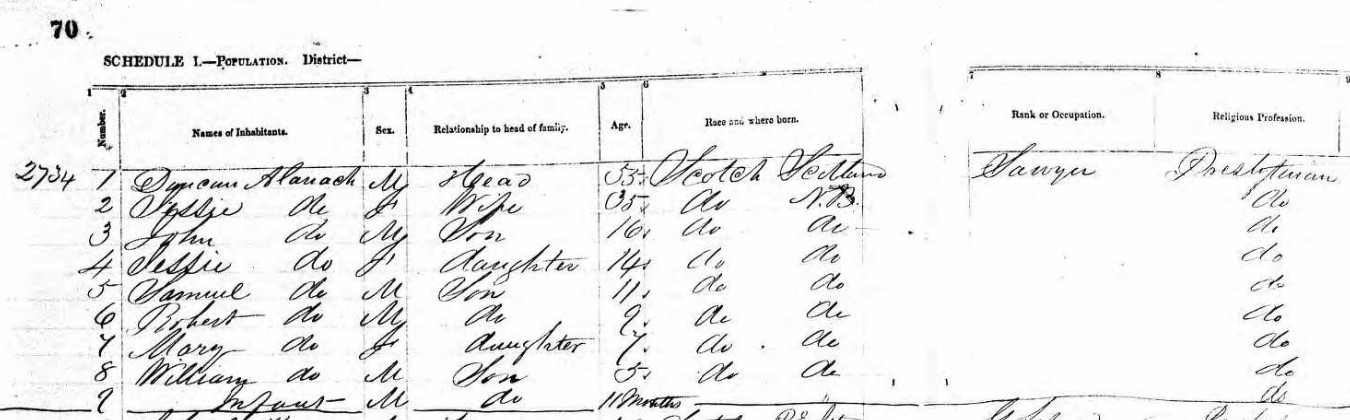 70
SCHEDULE I.—POPULATION. District—
1 2 3 4 5 6 7 8 9
Number. Names of Inhabitants. Sex. Relationship to head of family. Age. Race and where born. Rank or Occupation. Religious Profession.
2734 1 Duncan Alanach M Head 55 Scotch Scotland Sawyer Presbterian
2 Jessie do F Wife 35 do N.B. do
3 John do M Son 16 do do do
4 Jessie do F daughter 14 do do do
5 Samuel do M Son 11 do do do
6 Robert do M do 9 do do do
7 Mary do F daughter 7 do do do
8 William do M Son 5 do do do
9 Infant M do 11 Months do